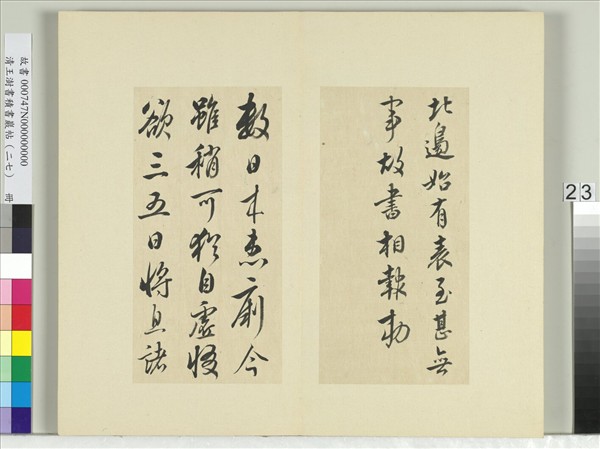 北邊始有表至甚無
事故書相報勅
數日来患痢今
雖稍可猶自虛惙
欲三五日將息諸
故書 000747N000000000
清王澍書積書巖帖(二七) 冊
23